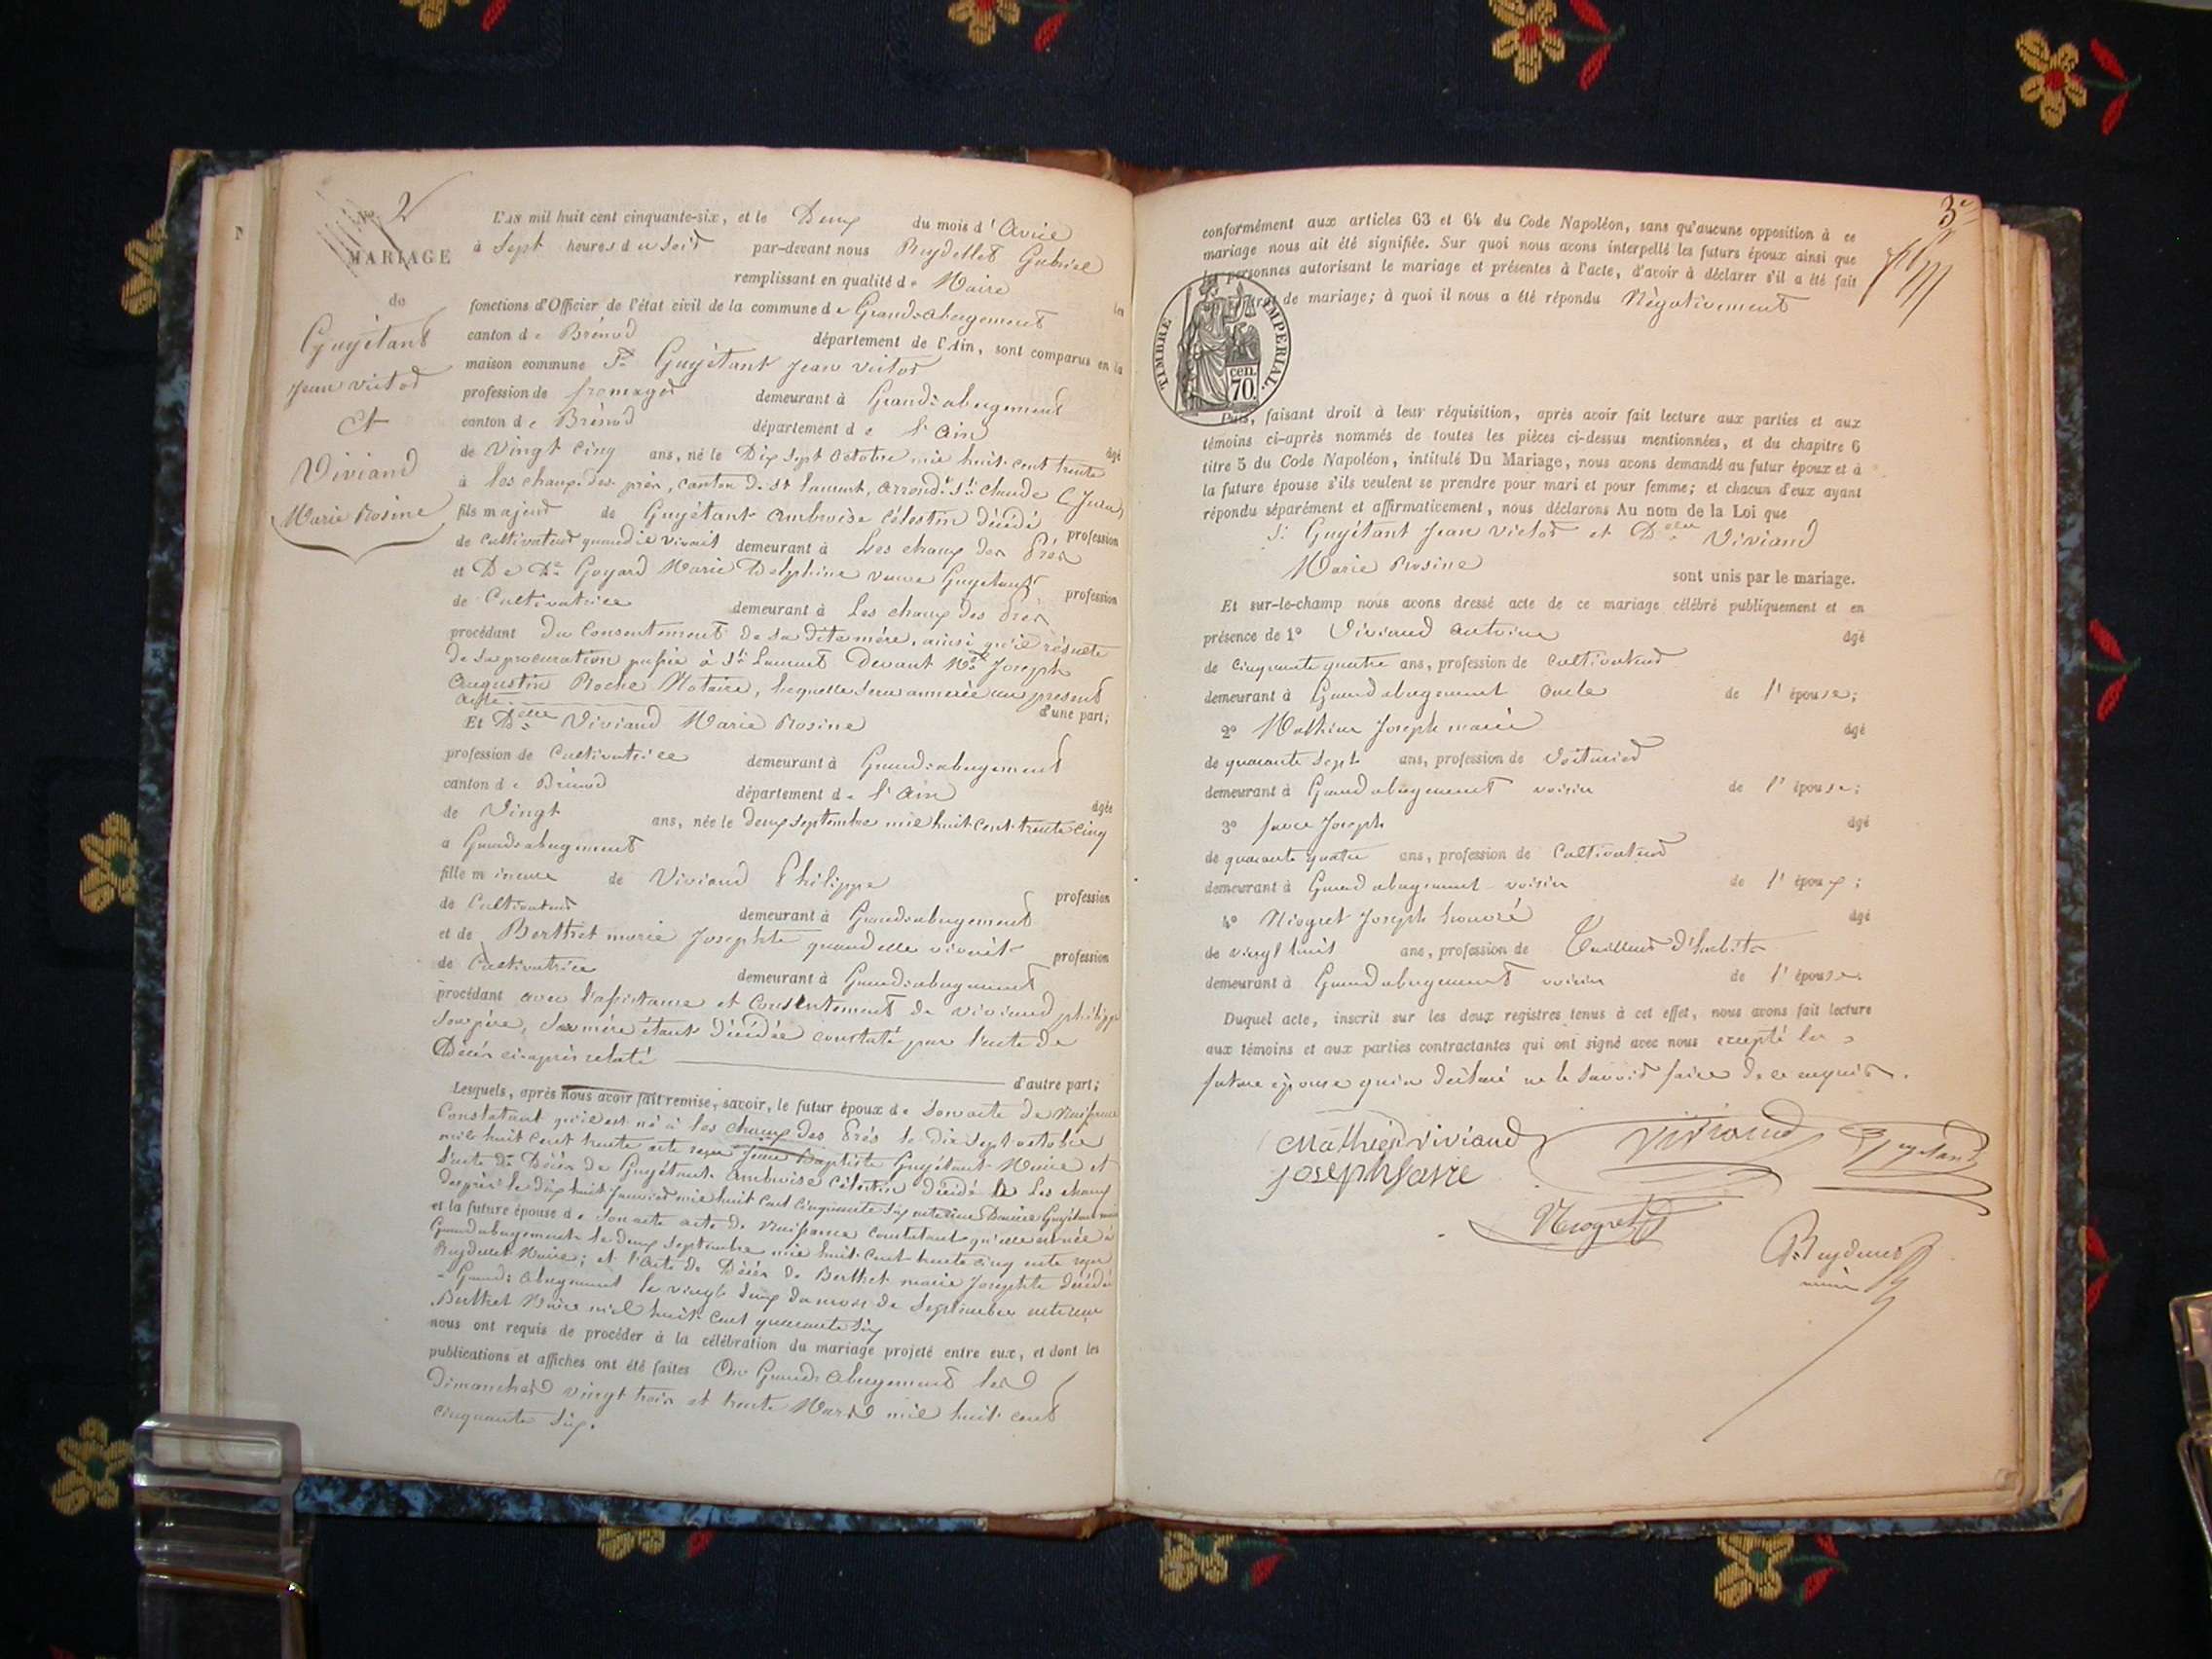 No 2
MARIAGE
de
Guyétant
Jean victor
et
Viviand
Marie Rosine
L'AN mil huit cent cinquante-six, et le Deux du mois d'Avril
à Sept heures du soir par-devant nous Reydellet Gabriel
remplissant en qualité de Maire les
fonctions d'Officier de l'état civil de la commune de Grand-abergement
canton de Brénod département de l'Ain, sont comparus en la
maison commune Sr Guyétant Jean victor
profession de fromager demeurant à Grand-abergement
canton de Brénod département de l'ain âgé
de vingt cinq ans, né le Dix sept octobre mil huit cent trente
à les chaux des prés, canton de st laurent, arrondt St claude (Jura)
fils majeur de Guyétant Ambroise Célestin décédé profession
de cultivateur quand il vivait demeurant à Les chaux des Prés
et De De Goyard Marie Delphine veuve Guyétant, profession
de Cultivatrice demeurant à Les chaux des Prés
procédant du Consentement de sa dite mère, ainsi qu'il résulte
de sa procuration passée à St Laurent Devant Me Joseph
Augustin Roche Notaire, laquelle sera annexée au present
acte d'une part;
Et Delle Viviand Marie Rosine
profession de Cultivatrice demeurant à Grand-abergement
canton de Brénod département de l'Ain âgée
de Vingt ans, née le deux septembre mil huit cent trente cinq
à Grand-abergement
fille mineure de Viviand Philippe profession
de Cultivateur demeurant à Grand-abergement
et de Berthet marie Josephte quand elle vivait profession
de Cultivatrice demeurant à Grand-abergement
procédant avec l'assistance et Consentement de Viviand philippe
son père, sa mère étant décédée constaté par l'acte de
Décès ci-après relaté d'autre part;
Lesquels, après nous avoir fait remise, savoir, le futur époux de son acte de Naissance
Constatant qu'il est né à les chaux des Prés le dix sept octobre
mil huit cent trente acte reçu Jean Baptiste Guyétant Maire et
l'acte de Décès de Guyétant Ambroise Célestin décédé à Les chaux
des prés le dix huit Janvier mil huit cent cinquante six acte reçu Guyétant
et la future épouse de son acte acte de Naissance constatant qu'elle est née à
Grand abergement le deux septembre mil huit cent trente cinq acte reçu
Reydellet Maire; et l'Acte de Décès de Berthet marie Josephte décédé
à Grand-Abergement le vingt deux du mois de Septembre acte reçu
Berthet Maire mil huit cent quarante six
nous ont requis de procéder à la célébration du mariage projeté entre eux, et dont les
publications et affiches ont été faites Au Grand-Abergement les
Dimanches vingt trois et trente Mars mil huit cent
cinquante six.
3e
conformément aux articles 63 et 64 du Code Napoléon, sans qu'aucune opposition à ce
mariage nous ait été signifiée. Sur quoi nous avons interpellé les futurs époux ainsi que
les personnes autorisant le mariage et présentes à l'acte, d'avoir à déclarer s'il a été fait
contrat de mariage; à quoi il nous a été répondu Négativement
TIMBRE IMPERIAL.
cen.
70.
Puis, faisant droit à leur réquisition, après avoir fait lecture aux parties et aux
témoins ci-après nommés de toutes les pièces ci-dessus mentionnées, et du chapitre 6
titre 5 du Code Napoléon, intitulé Du Mariage, nous avons demandé au futur époux et à
la future épouse s'ils veulent se prendre pour mari et pour femme; et chacun d'eux ayant
répondu séparément et affirmativement, nous déclarons Au nom de la Loi que
Sr Guyétant Jean Victor et Delle Viviand
Marie Rosine sont unis par le mariage.
Et sur-le-champ nous avons dressé acte de ce mariage célébré publiquement et en
présence de 1º Viviand Antoine âgé
de cinquante quatre ans, profession de cultivateur
demeurant à Grand abergement oncle de l'épouse;
2º Mathieu Joseph marie âgé
de quarante sept ans, profession de Voiturier
demeurant à Grand abergement voisin de l'épouse;
3º favre Joseph âgé
de quarante quatre ans, profession de Cultivateur
demeurant à Grand abergement voisin de l'époux;
4º Niogret Joseph honoré âgé
de vingt huit ans, profession de Tailleur d'habits
demeurant à Grand abergement voisin de l'épouse.
Duquel acte, inscrit sur les deux registres tenus à cet effet, nous avons fait lecture
aux témoins et aux parties contractantes qui ont signé avec nous excepté la
future épouse qui a déclaré ne le savoir faire de ce enquis.
Mathieu Viviand Viviand Guyetant
joseph favre
Niogret
Reydellet
maire